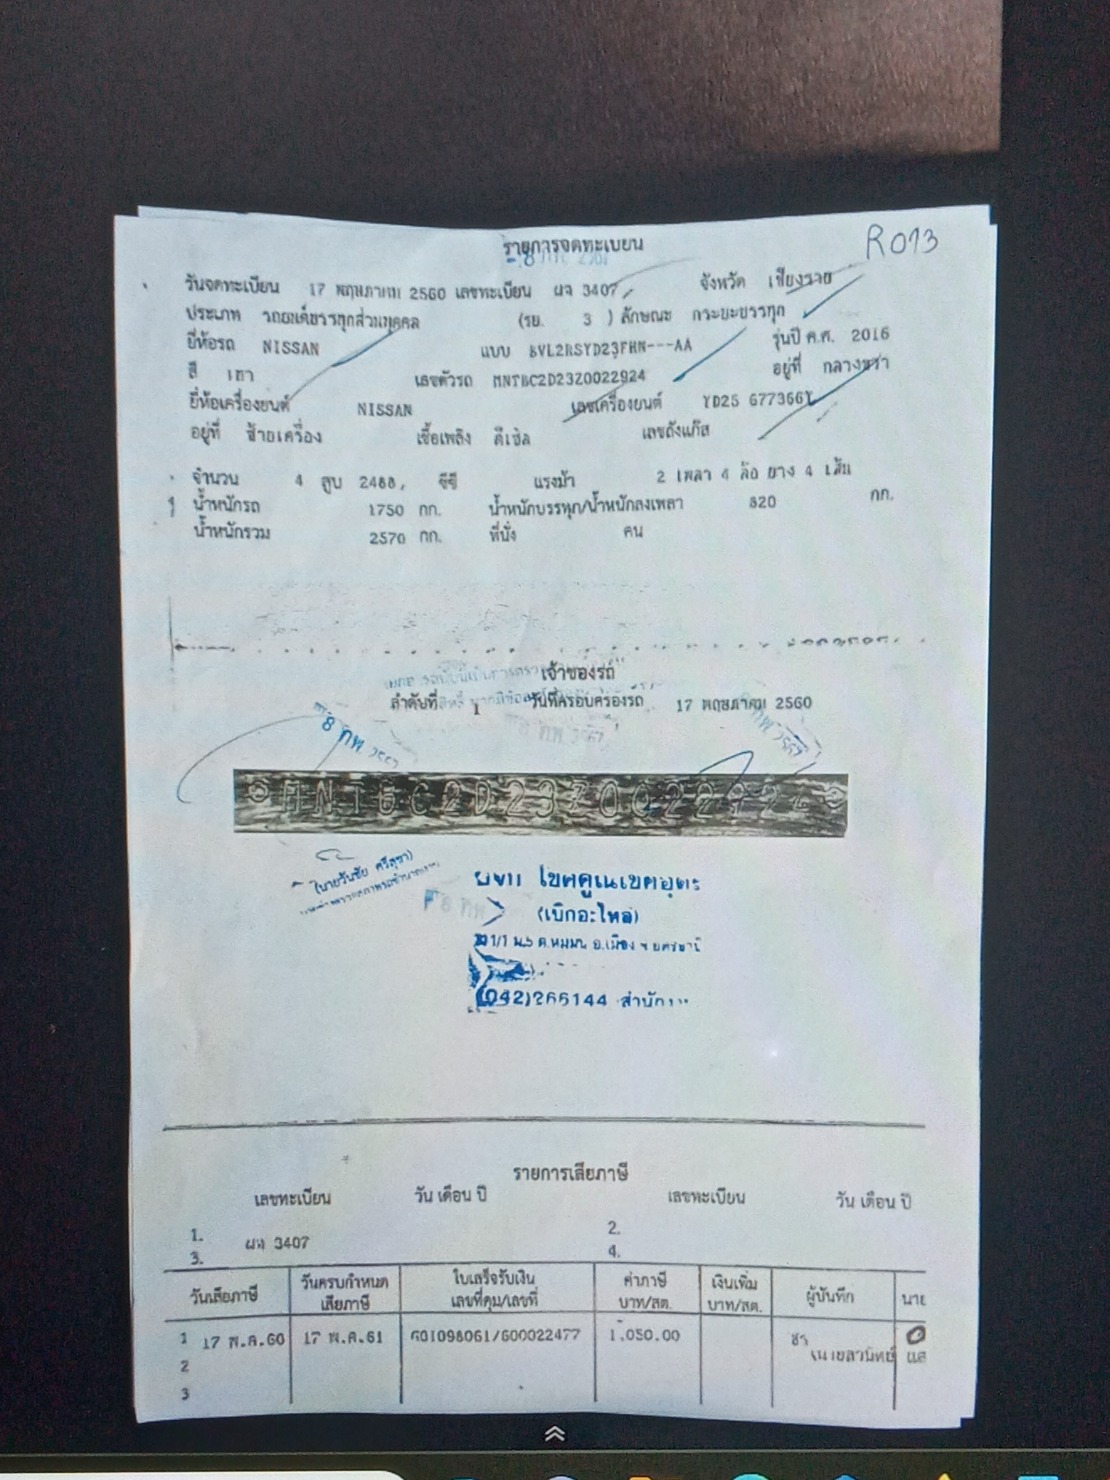 รายการจดทะเบียน
R013
วันจดทะเบียน 17 พฤษภาคม 2560 เลขทะเบียน ผจ 3407 จังหวัด เชียงราย
ประเภท รถยนต์บรรทุกส่วนบุคคล (รย. 3 ) ลักษณะ กระบะบรรทุก
ยี่ห้อรถ NISSAN แบบ BVL2RSYD23FHN---AA รุ่นปี ค.ศ. 2016
สี เทา เลขตัวรถ MNTBC2D23Z0022924 อยู่ที่ กลางขวา
ยี่ห้อเครื่องยนต์ NISSAN เลขเครื่องยนต์ YD25 677366T
อยู่ที่ ซ้ายเครื่อง เชื้อเพลิง ดีเซล เลขถังแก๊ส
จำนวน 4 สูบ 2488, ซีซี แรงม้า 2 เพลา 4 ล้อ ยาง 4 เส้น
น้ำหนักรถ 1750 กก. น้ำหนักบรรทุก/น้ำหนักลงเพลา 820 กก.
น้ำหนักรวม 2570 กก. ที่นั่ง คน
เจ้าของรถ
ลำดับที่ 1 วันที่ครอบครองรถ 17 พฤษภาคม 2560
8 กพ.
MNTBC2D23Z0022924
(นายวันชัย ศรีสุชา)
(เบิกอะไหล่)
(042)265144 สำนักงาน
รายการเสียภาษี
เลขทะเบียน วัน เดือน ปี เลขทะเบียน วัน เดือน ปี
1. ผจ 3407 2.
3. 4.
วันเสียภาษี วันครบกำหนดเสียภาษี ใบเสร็จรับเงิน เลขที่คุม/เลขที่ ค่าภาษี บาท/สต. เงินเพิ่ม บาท/สต. ผู้บันทึก นาย
1 17 พ.ค.60 17 พ.ค.61 601098061/600022477 1,050.00
2
3